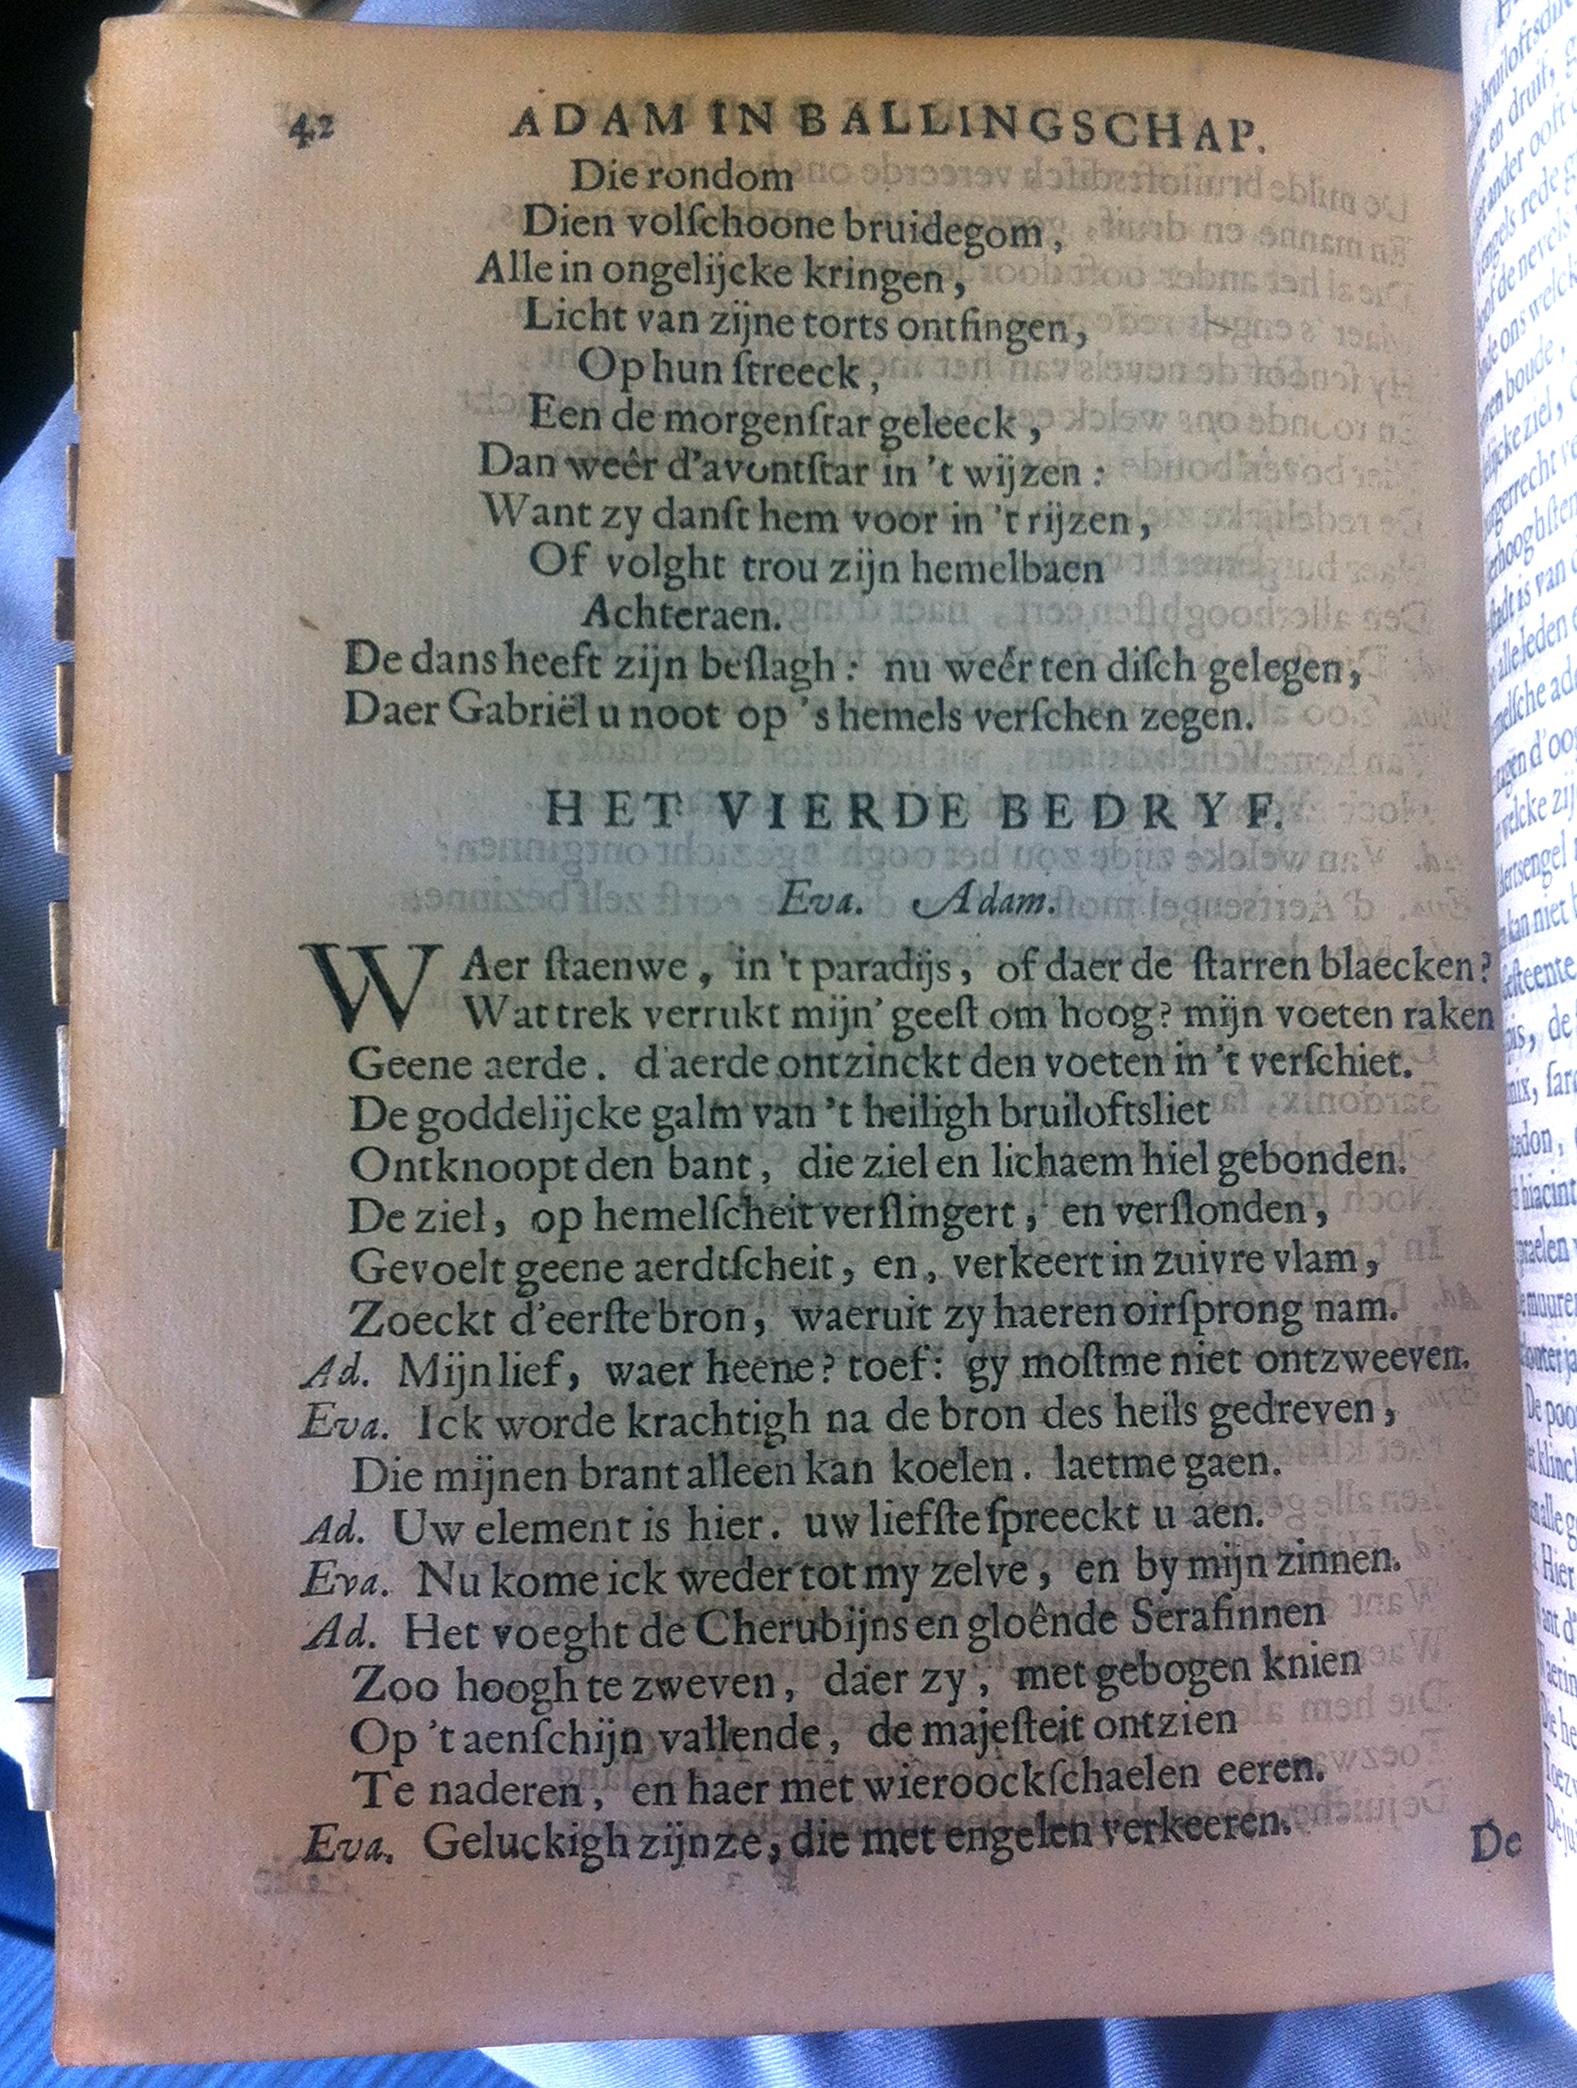 42 ADAM IN BALLINGSCHAP.
Die rondom
Dien volſchoone bruidegom,
Alle in ongelijcke kringen,
Licht van zijne torts ontfingen,
Op hun ſtreeck,
Een de morgenſtar geleeck,
Dan weêr d'avontſtar in 't wijzen:
Want zy danſt hem voor in 't rijzen,
Of volght trou zijn hemelbaen
Achteraen.
De dans heeft zijn beſlagh: nu weêr ten diſch gelegen,
Daer Gabriël u noot op 's hemels verſchen zegen.
HET VIERDE BEDRYF.
Eva. Adam.
WAer ſtaenwe, in 't paradijs, of daer de ſtarren blaecken?
Wat trek verrukt mijn' geeſt om hoog? mijn voeten raken
Geene aerde. d'aerde ontzinckt den voeten in 't verſchiet.
De goddelijcke galm van 't heiligh bruiloftsliet
Ontknoopt den bant, die ziel en lichaem hiel gebonden.
De ziel, op hemelſcheit verſlingert, en verſlonden,
Gevoelt geene aerdtſcheit, en, verkeert in zuivre vlam,
Zoeckt d'eerſte bron, waeruit zy haeren oirſprong nam.
Ad. Mijn lief, waer heene? toef: gy moſtme niet ontzweeven.
Eva. Ick worde krachtigh na de bron des heils gedreven,
Die mijnen brant alleen kan koelen. laetme gaen.
Ad. Uw element is hier. uw liefſte ſpreeckt u aen.
Eva. Nu kome ick weder tot my zelve, en by mijn zinnen.
Ad. Het voeght de Cherubijns en gloênde Serafinnen
Zoo hoogh te zweven, daer zy, met gebogen knien
Op 't aenſchijn vallende, de majeſteit ontzien
Te naderen, en haer met wieroockſchaelen eeren.
Eva. Geluckigh zijnze, die met engelen verkeeren.
De